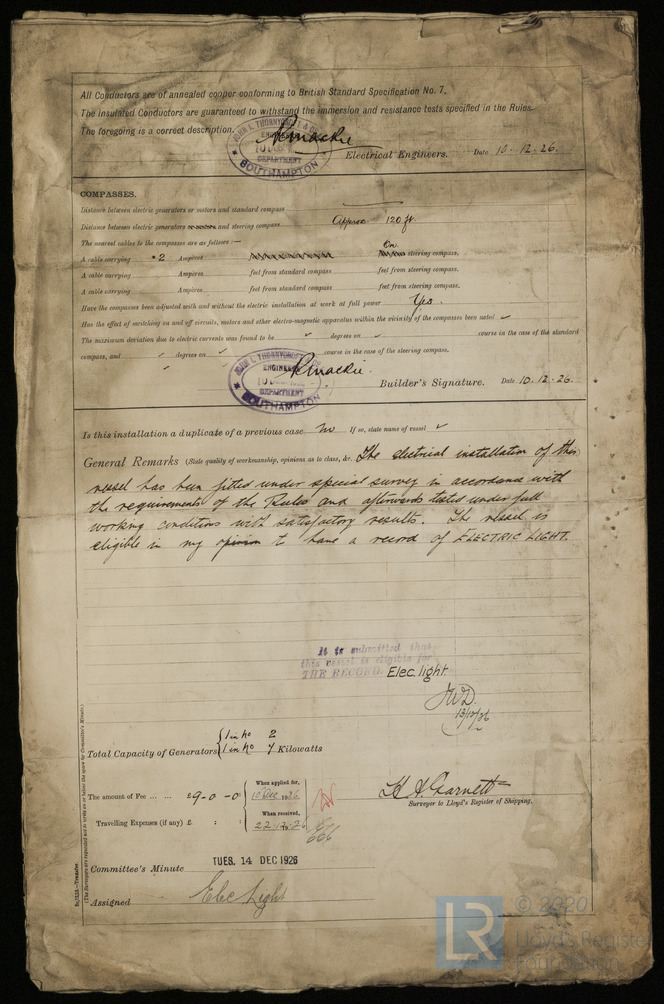 All Conductors are of annealed copper conforming to British Standard Specification No. 7.
The Insulated Conductors are guaranteed to withstand the immersion and resistance tests specified in the Rules.
The foregoing is a correct description.
JOHN I. THORNYCROFT &
ENGINEERING
DEPARTMENT
SOUTHAMPTON
Electrical Engineers. Date 10-12-26.
COMPASSES.
Distance between electric generators or motors and standard compass
Distance between electric generators and steering compass Approx 120 ft.
The nearest cables to the compasses are as follows:—
A cable carrying 2 Ampères On steering compass.
A cable carrying Ampères feet from standard compass feet from steering compass.
A cable carrying Ampères feet from standard compass feet from steering compass.
Have the compasses been adjusted with and without the electric installation at work at full power Yes.
Has the effect of switching on and off circuits, motors and other electro-magnetic apparatus within the vicinity of the compasses been noted ✓
The maximum deviation due to electric currents was found to be ✓ degrees on ✓ course in the case of the standard
compass, and ✓ degrees on ✓ course in the case of the steering compass.
JOHN I. THORNYCROFT
ENGINEERING
DEPARTMENT
SOUTHAMPTON
Builder's Signature. Date 10-12-26.
Is this installation a duplicate of a previous case No If so, state name of vessel ✓
General Remarks (State quality of workmanship, opinions as to class, &c. The electrical installation of this
vessel has been fitted under special survey in accordance with
the requirements of the Rules and afterwards tested under full
working conditions with satisfactory results. The vessel is
eligible in my opinion to have a record of ELECTRIC LIGHT.
It is submitted that
this vessel is eligible for
THE RECORD. Elec. light
13/12/26
Total Capacity of Generators { 1 in No 2
1 in No 7 Kilowatts
The amount of Fee ... ... £9-0-0
When applied for,
10 Dec 1926
When received,
22.12.26
Travelling Expenses (if any) £ : :
H A Garnett
Surveyor to Lloyd's Register of Shipping.
Committee's Minute TUES. 14 DEC 1926
Assigned Elec Light
LR
© 2020
Lloyd's Register
Foundation